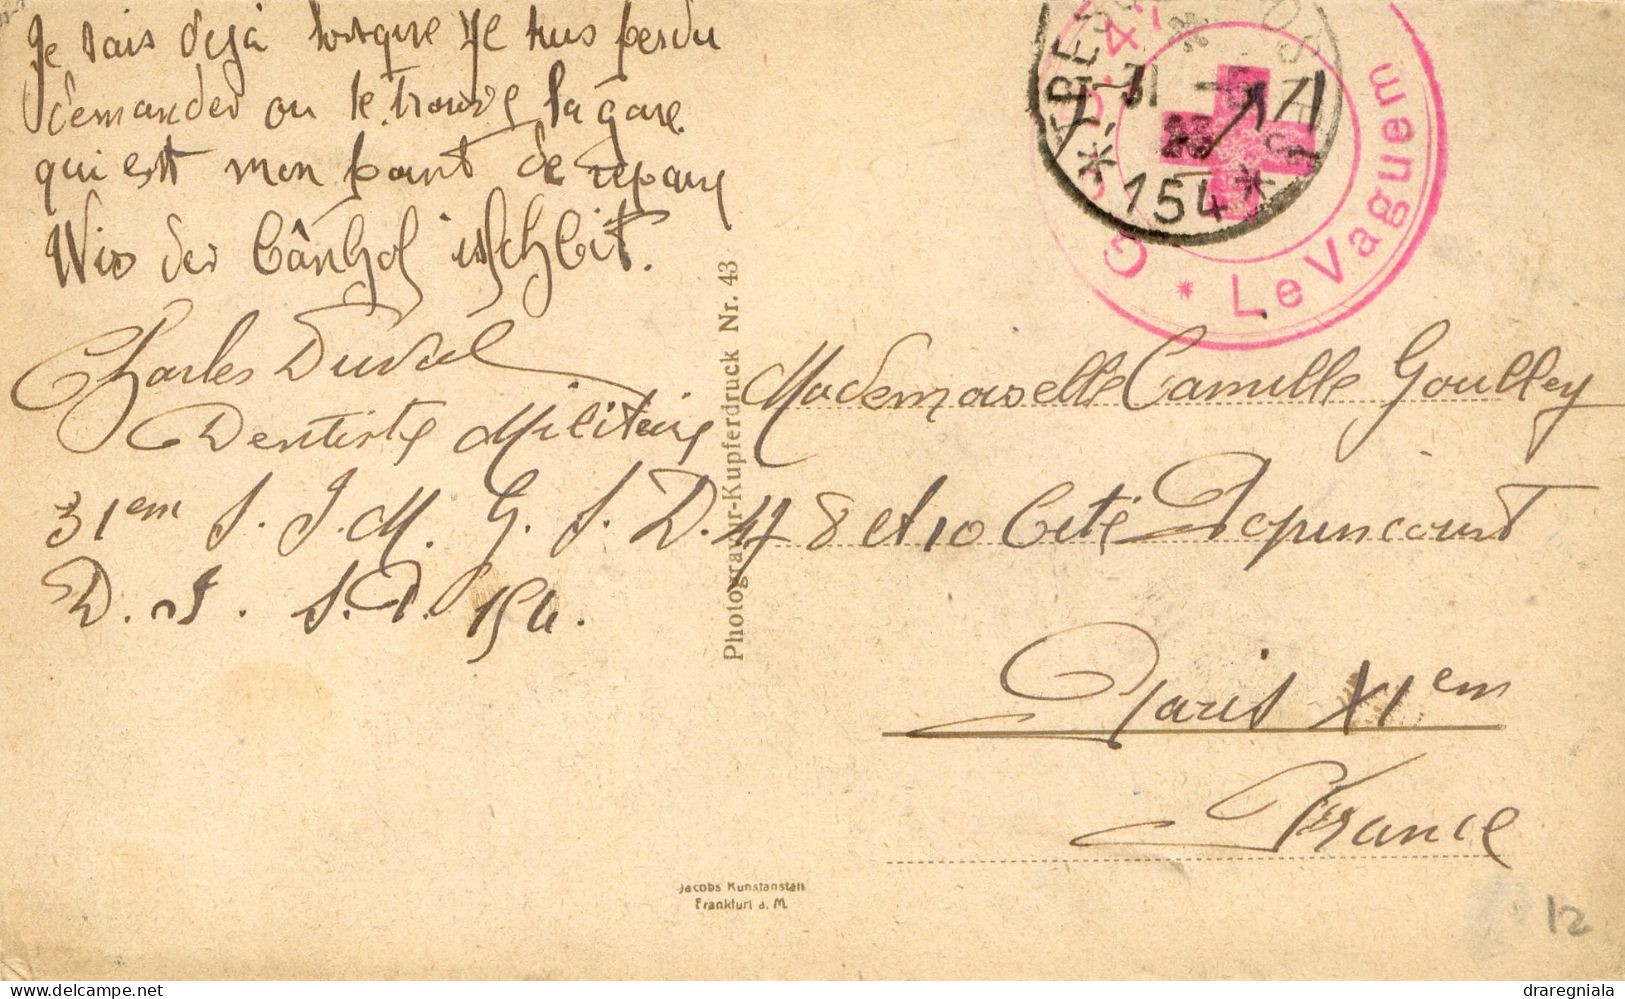 Je sais déjà lorsque je suis perdu
demander ou se trouve la gare
qui est mon point de repaire
Wio der bânhof ischbit.
Charles Duval
Dentiste Militaire
31em S. I. M. G. S. D. 47
D. I. S. P. 154.
Photogravur-Kupferdruck Nr. 43
TRESOR
POSTES
31
* 154 *
47
G
* Le Vaguem
Mademoiselle Camille Goulley
8 et 10 Cité Popincourt
Paris XIem
France
Jacobs Kunstanstalt
Frankfurt a. M.
12
delcampe.net
draregniala